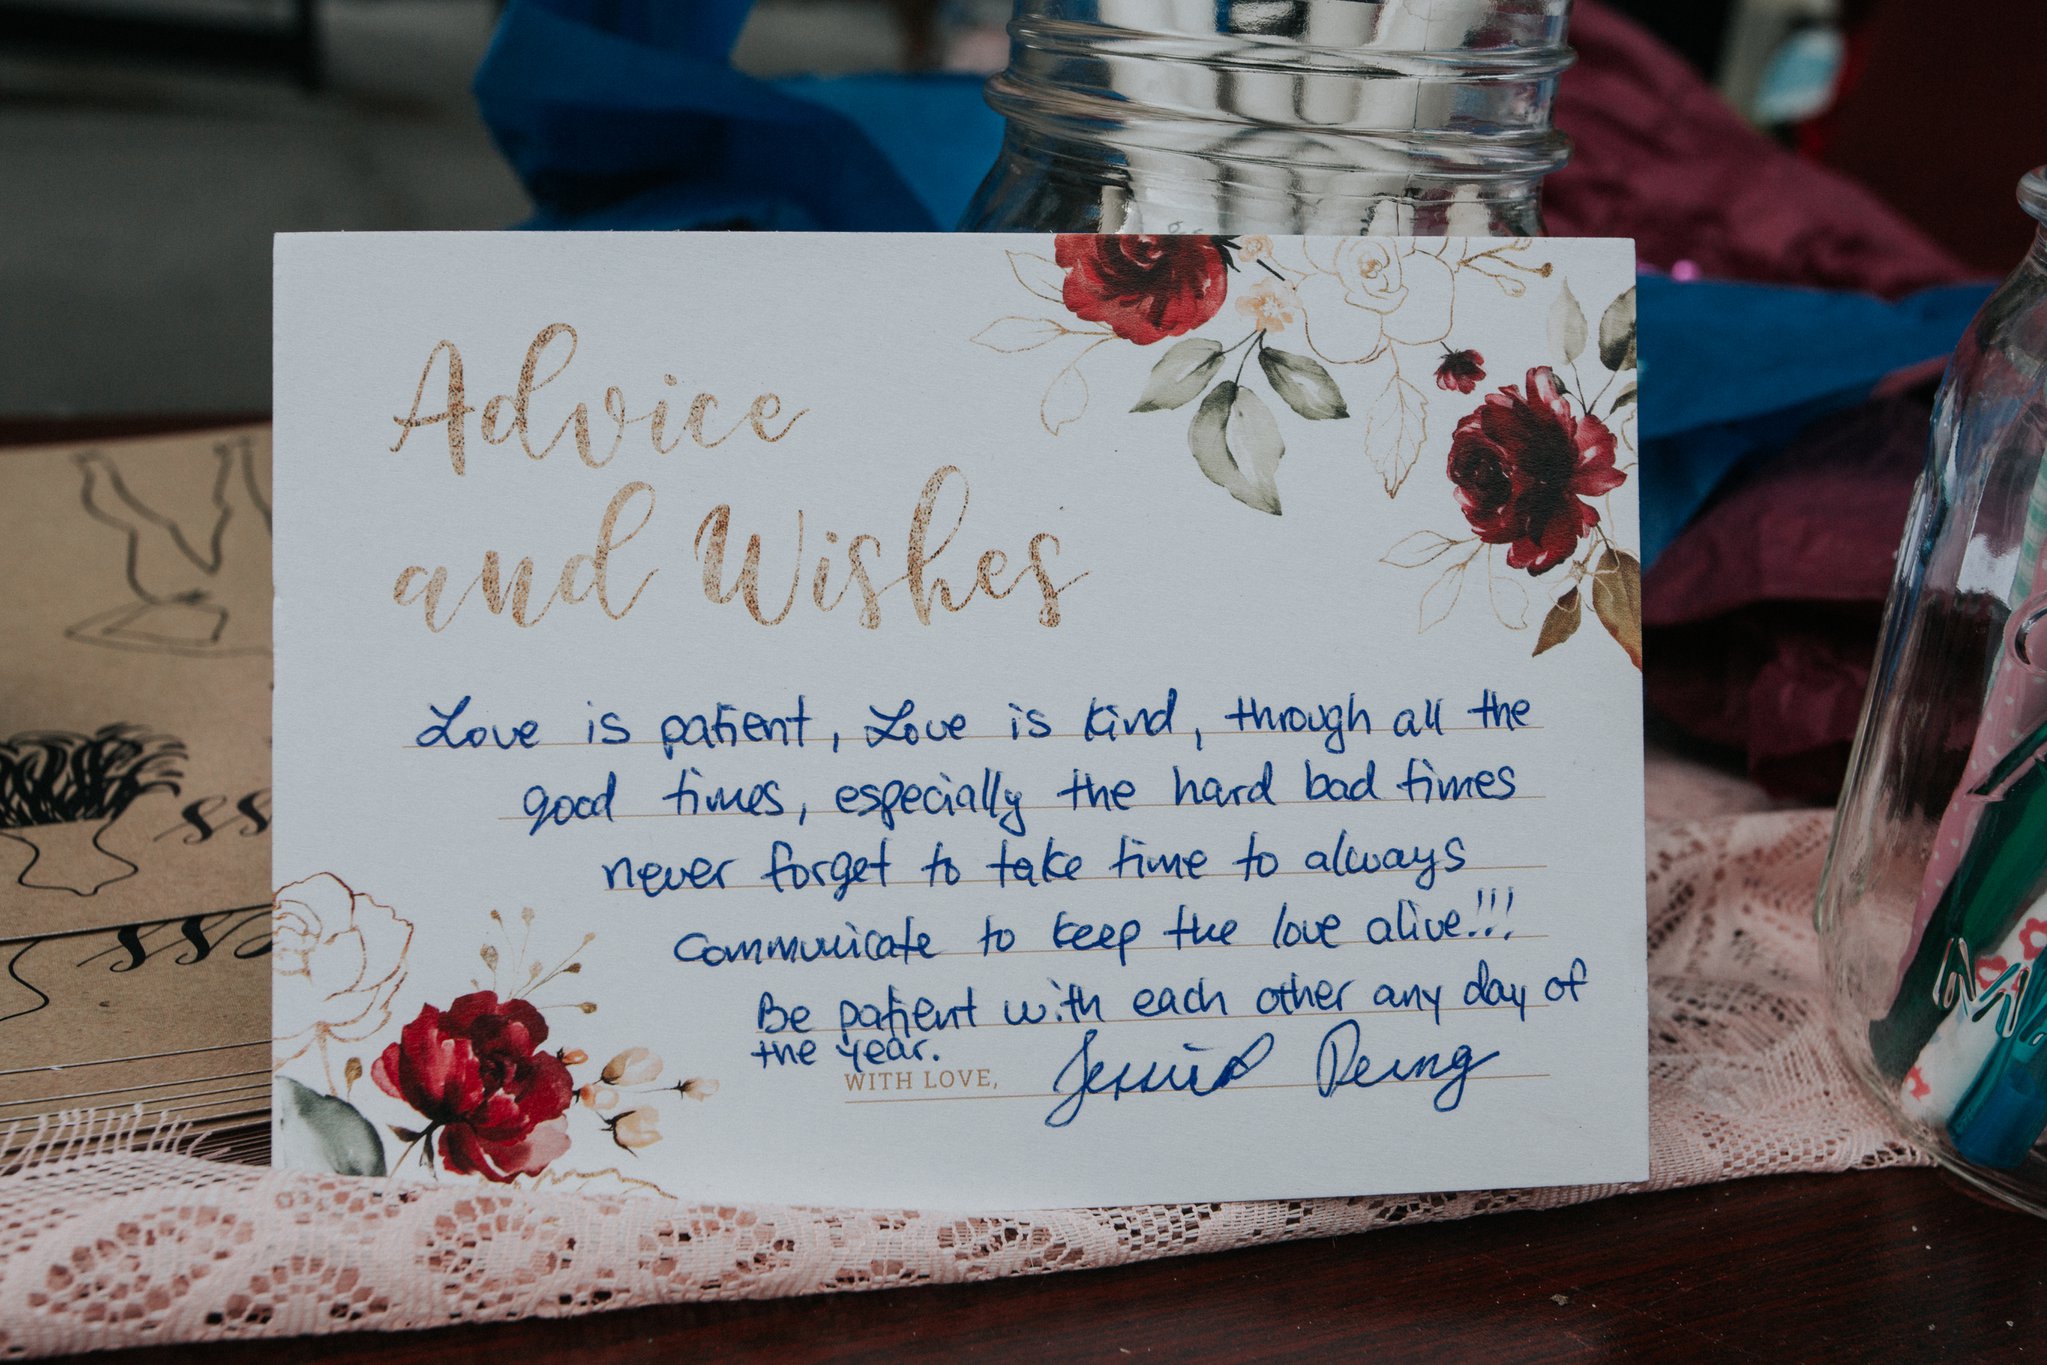 Advice
and Wishes
Love is patient, Love is kind, through all the
good times, especially the hard bad times
never forget to take time to always
communicate to keep the love alive!!!
Be patient with each other any day of
the year.
WITH LOVE,
ss
ss